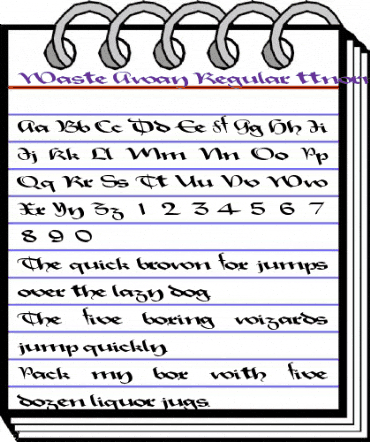 Waste Away Regular ttnorm
Aa Bb Cc Dd Ee Ff Gg Hh Ii
Jj Kk Ll Mm Nn Oo Pp
Qq Rr Ss Tt Uu Vv Ww
Xx Yy Zz 1 2 3 4 5 6 7
8 9 0
The quick brown fox jumps
over the lazy dog
The five boxing wizards
jump quickly
Pack my box with five
dozen liquor jugs